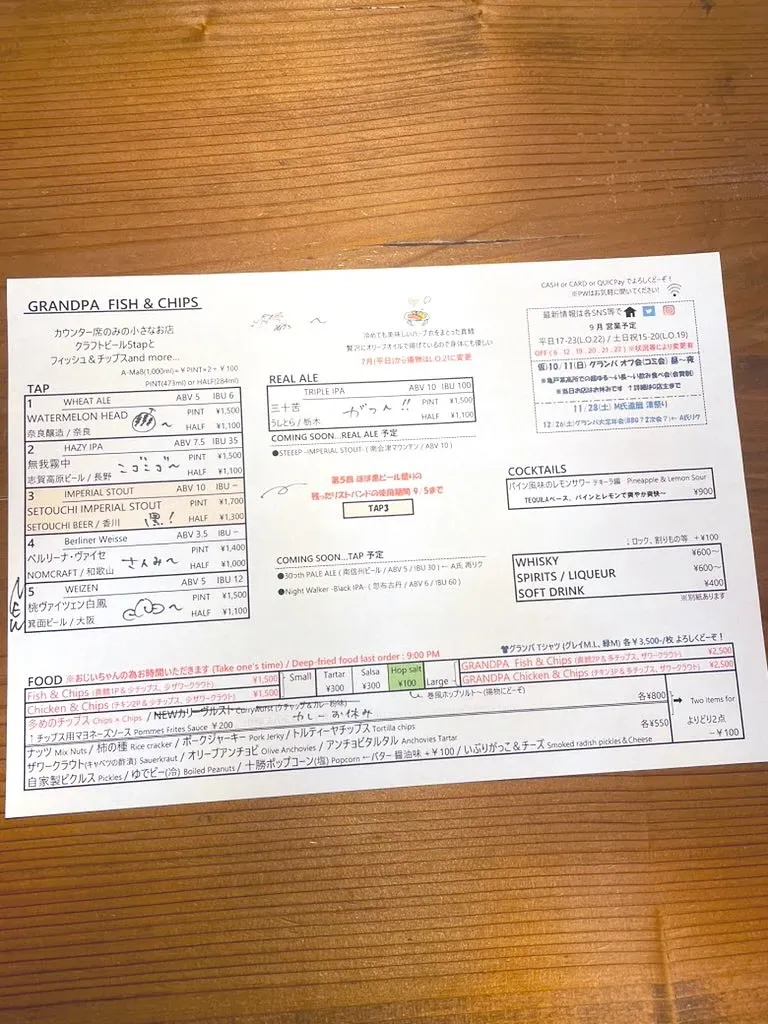 GRANDPA FISH & CHIPS
カウンター席のみの小さなお店
クラフトビール5tapと
フィッシュ&チップスand more...
A-Ma8(1,000ml)=¥PINT×2+¥100
PINT(473ml) or HALF(284ml)
冷めても美味しいハーブ衣をまとった真鱈
贅沢にオリーブオイルで揚げているので身体にも優しい
7月(平日)から揚物はL.O.21に変更
CASH or CARD or QUICPay でよろしくどーぞ!
※PWはお気軽に聞いてください!
最新情報は各SNS等で
9月 営業予定
平日17-23(L.O.22) / 土日祝15-20(L.O.19)
OFF ( 6, 12, 19, 20, 21, 22 ) ※状況等により変更有
(仮)10/11(日) グランパ オフ会(コミ会) 昼~夜
※当日お店はお休みです ↑詳細は店主まで
11/28(土) M氏還暦 凛祭り
TAP
1 WHEAT ALE ABV 5 IBU 6
WATERMELON HEAD PINT ¥1,500
奈良醸造 / 奈良 HALF ¥1,100
2 HAZY IPA ABV 7.5 IBU 35
無我霧中 ゴゴゴ~ PINT ¥1,500
志賀高原ビール / 長野 HALF ¥1,100
3 IMPERIAL STOUT ABV 10 IBU -
SETOUCHI IMPERIAL STOUT PINT ¥1,700
SETOUCHI BEER / 香川 黒! HALF ¥1,300
4 Berliner Weisse ABV 3.5 IBU -
ベルリーナ・ヴァイセ さんみ~ PINT ¥1,400
NOMCRAFT / 和歌山 HALF ¥1,000
NEW
5 WEIZEN ABV 5 IBU 12
桃ヴァイツェン白鳳 PINT ¥1,500
箕面ビール / 大阪 HALF ¥1,100
REAL ALE
TRIPLE IPA ABV 10 IBU 100
三十苦 がつん!! PINT ¥1,500
うしとら / 栃木 HALF ¥1,100
COMING SOON...REAL ALE 予定
●STEEEP -IMPERIAL STOUT- ( 南会津マウンテン / ABV 10 )
第5回 球球黒ビール祭りの
残ったリストバンドの使用期間 9/5まで
TAP3
COMING SOON...TAP 予定
●30oth PALE ALE ( 南信州ビール / ABV 5 / IBU 30 ) ← A氏 再リク
●Night Walker -Black IPA- ( 忽布古丹 / ABV 6 / IBU 60 )
COCKTAILS
パイン風味のレモンサワー テキーラ編 Pineapple & Lemon Sour
TEQUILAベース、パインとレモンで爽やか爽快~ ¥900
↓ロック、割りもの等 +¥100
WHISKY ¥600~
SPIRITS / LIQUEUR ¥600~
SOFT DRINK ¥400
※別紙あります
グランパTシャツ (グレイM.L、緑M) 各¥3,500-/枚 よろしくどーぞ!
FOOD ※おじいちゃんの為お時間いただきます (Take one's time) / Deep-fried food last order : 9:00 PM
Fish & Chips (真鱈1P & 少チップス、少ザワークラウト) ¥1,500
Chicken & Chips (チキン2P & 少チップス、少ザワークラウト) ¥1,500
Small
Tartar ¥300
Salsa ¥300
Hop salt ¥100
Large
GRANDPA Fish & Chips (真鱈2P & 多チップス、ザワークラウト) ¥2,500
GRANDPA Chicken & Chips (チキン3P & 多チップス、ザワークラウト) ¥2,500
巻風ホップソルト~(揚物にどーぞ)
多めのチップス Chips × Chips / NEWカリーヴルスト Currywurst (ケチャップ&カレー粉味) 各¥800
↑チップス用マヨネーズソース Pommes Frites Sauce ¥200 カレーお休み
ナッツ Mix Nuts / 柿の種 Rice cracker / ポークジャーキー Pork Jerky / トルティーヤチップス Tortilla chips 各¥550
ザワークラウト(キャベツの酢漬) Sauerkraut / オリーブアンチョビ Olive Anchovies / アンチョビタルタル Anchovies Tartar
自家製ピクルス Pickles / ゆでピー(冷) Boiled Peanuts / 十勝ポップコーン(塩) Popcorn ←バター醤油味 +¥100 / いぶりがっこ&チーズ Smoked radish pickles & Cheese
Two Items for
よりどり2点
-¥100